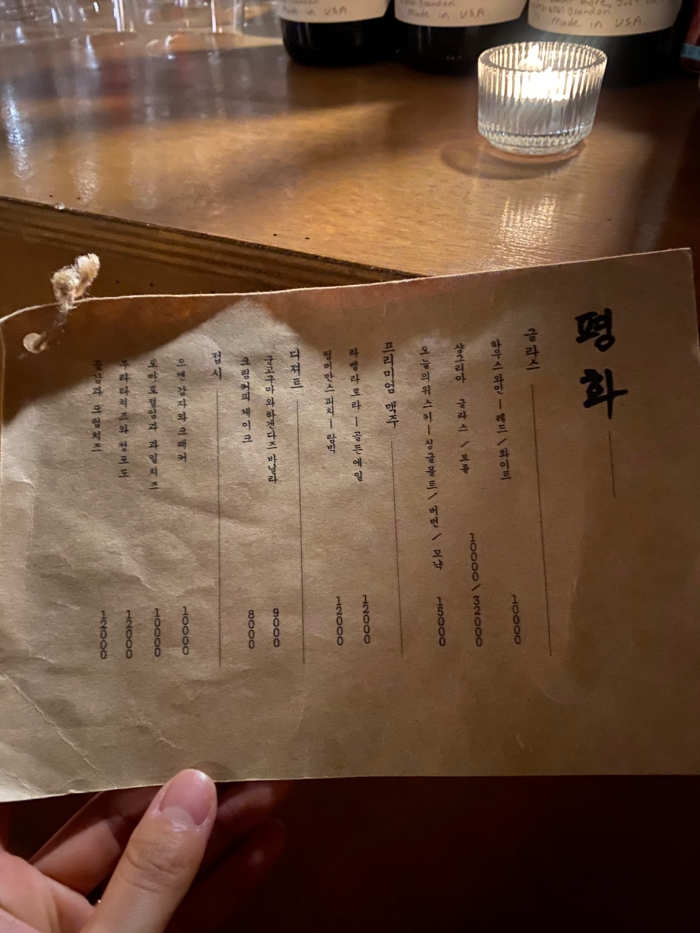 Made in U.S.A.
Made in U.S.A.
Made in U.S.A.
평화
글라스
하우스와인—레드/화이트 10000
상그리아 글라스/보틀 10000/32000
오늘의위스키—싱글몰드/버번/꼬냑 15000
프리미엄 맥주
라벨라로라—골든에일 12000
팀머만스피치—람빅 12000
디저트
군고구마와하겐다즈바닐라 9000
크림커피케이크 8000
접시
으깬감자와크래커 10000
토마토절임과 과일치즈 10000
부라타치즈와 청포도 12000
곶감과 크림치즈 12000